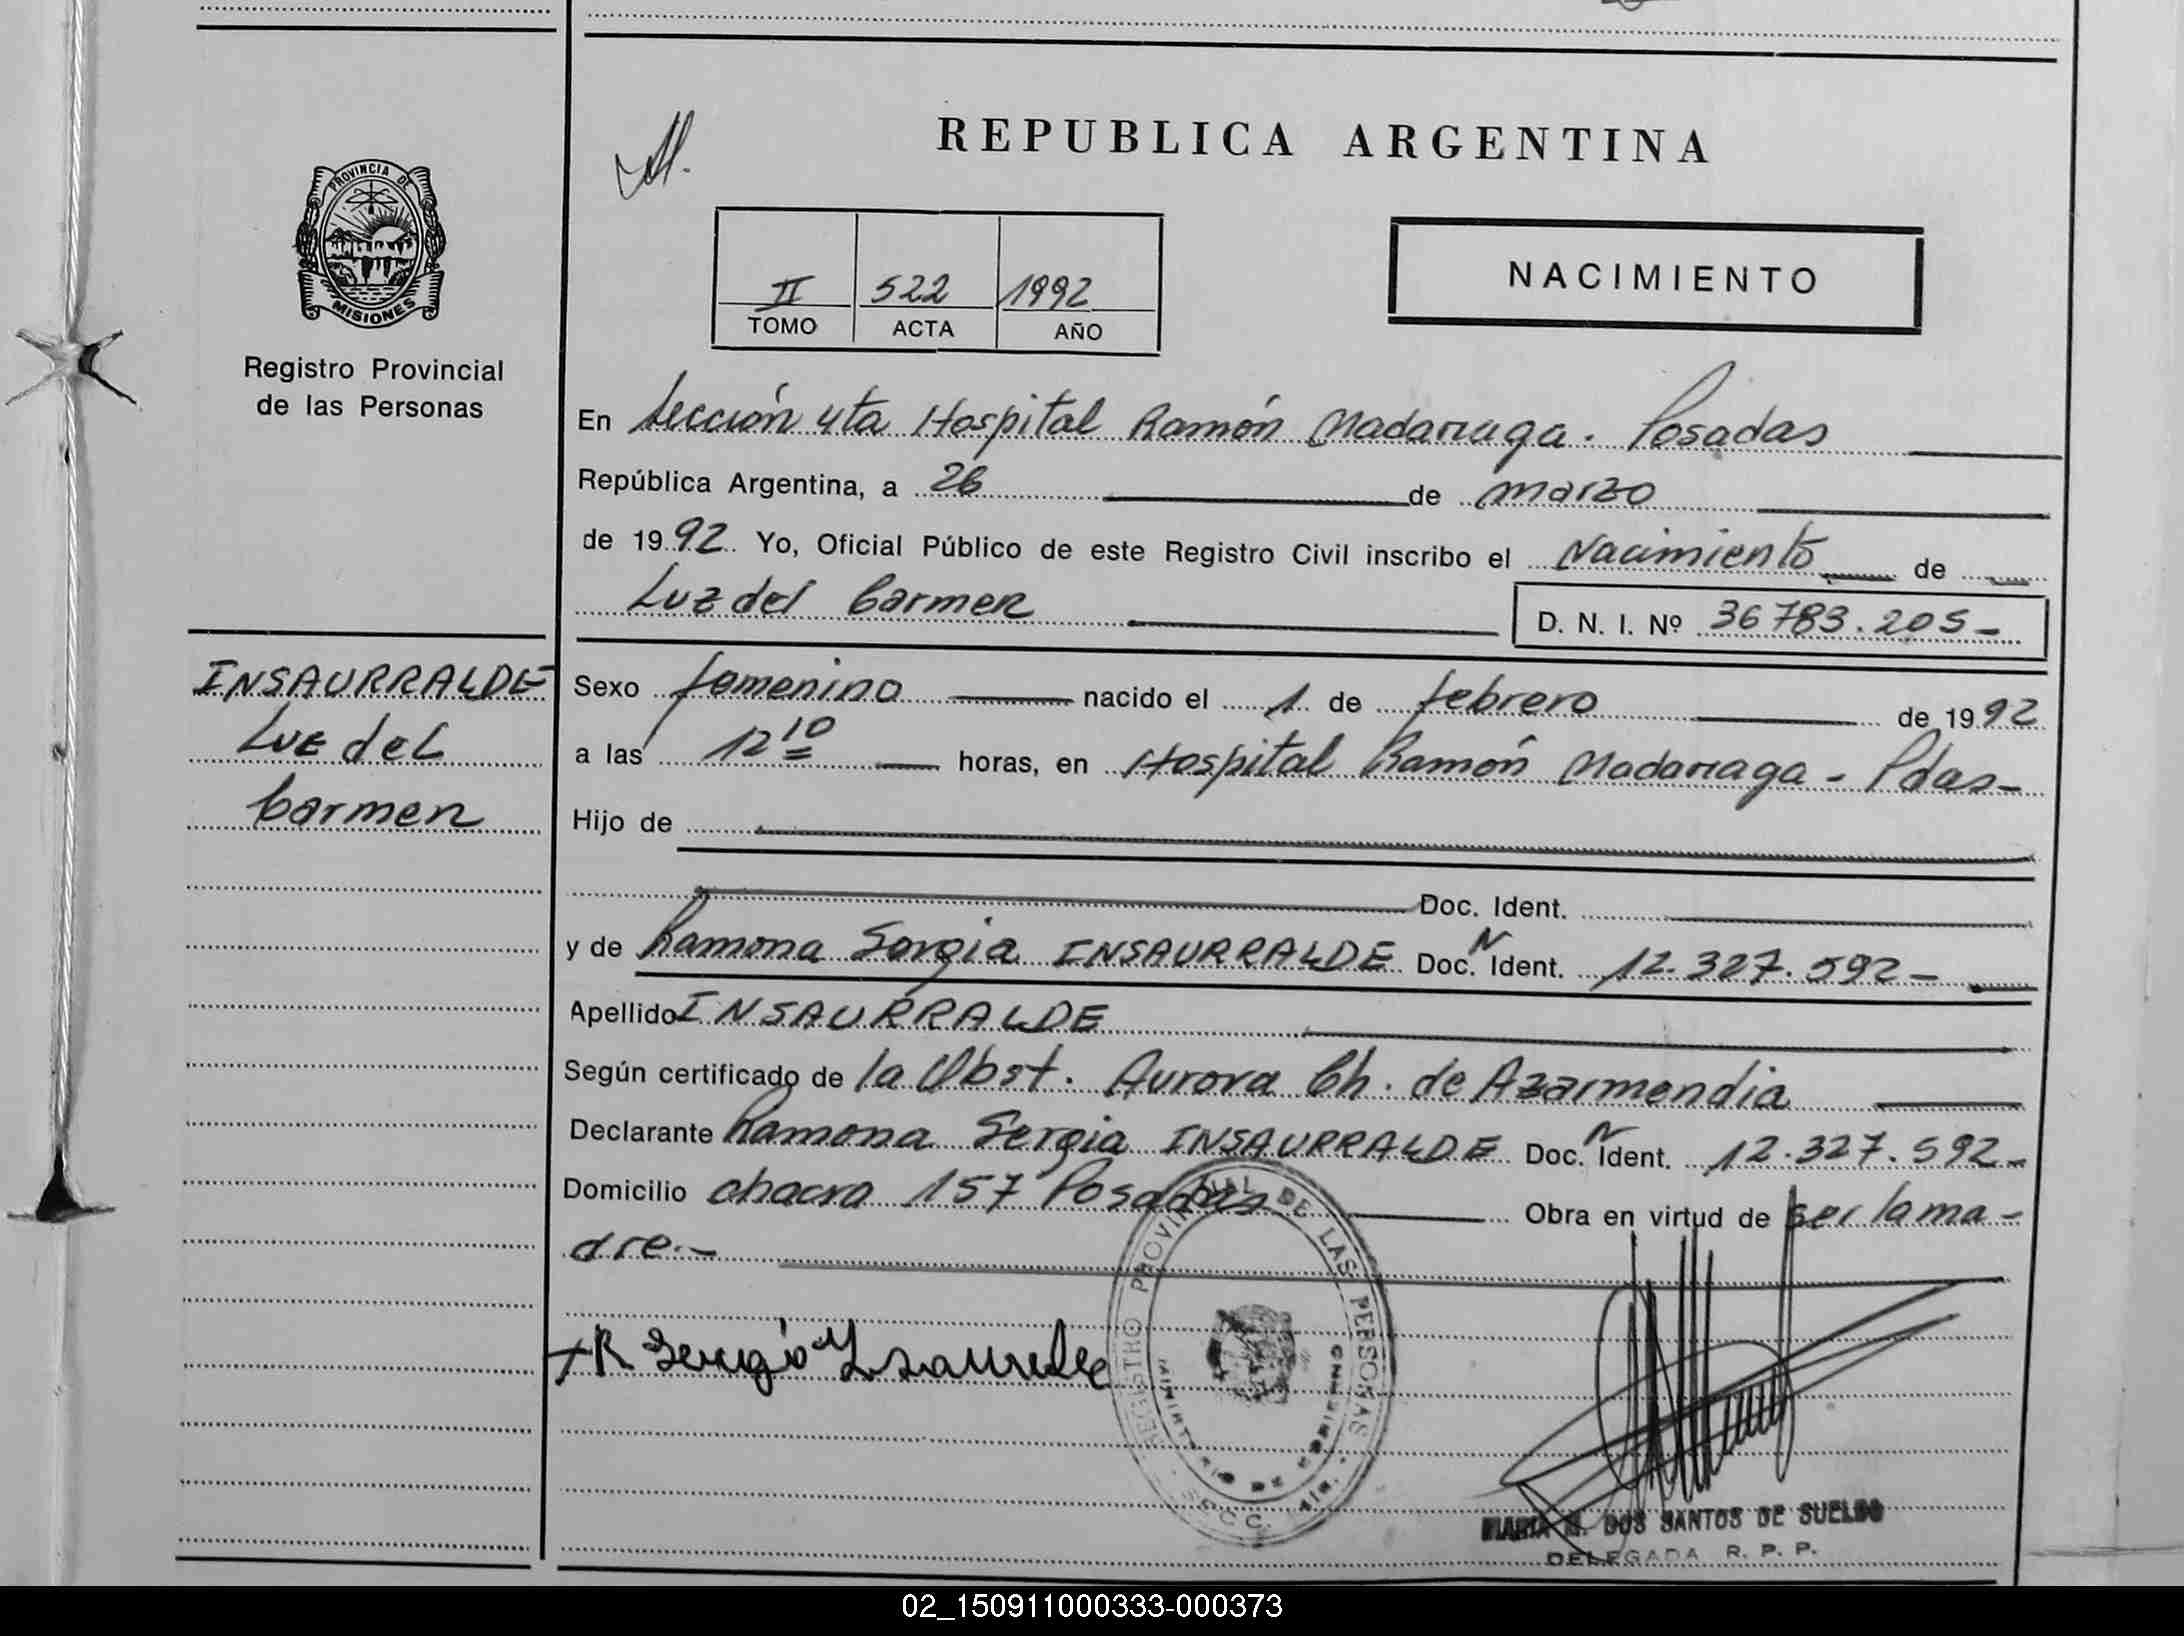 REPUBLICA ARGENTINA
PROVINCIA DE
MISIONES
Registro Provincial
de las Personas
II 522 1992
TOMO ACTA AÑO
NACIMIENTO
En Sección 4ta Hospital Ramón Madariaga. Posadas
República Argentina, a 26 de marzo
de 1992. Yo, Oficial Público de este Registro Civil inscribo el Nacimiento de
Luz del Carmen
D. N. I. Nº 36783.205-
INSAURRALDE
Luz del
Carmen
Sexo femenino nacido el 1 de febrero de 1992
a las 12 10 horas, en Hospital Ramón Madariaga - Pdas-
Hijo de
Doc. Ident.
y de Ramona Sergia INSAURRALDE Doc. N Ident. 12.327.592-
Apellido INSAURRALDE
Según certificado de la Obst. Aurora Ch. de Azarmendia
Declarante Ramona Sergia INSAURRALDE Doc. N Ident. 12.327.592-
Domicilio chacra 157 Posadas Obra en virtud de ser la ma-
dre.-
REGISTRO PROVINCIAL DE LAS PERSONAS
MINISTERIO DE GOBIERNO
MARIA DOS SANTOS DE SUELDO
DELEGADA R. P. P.
02_150911000333-000373